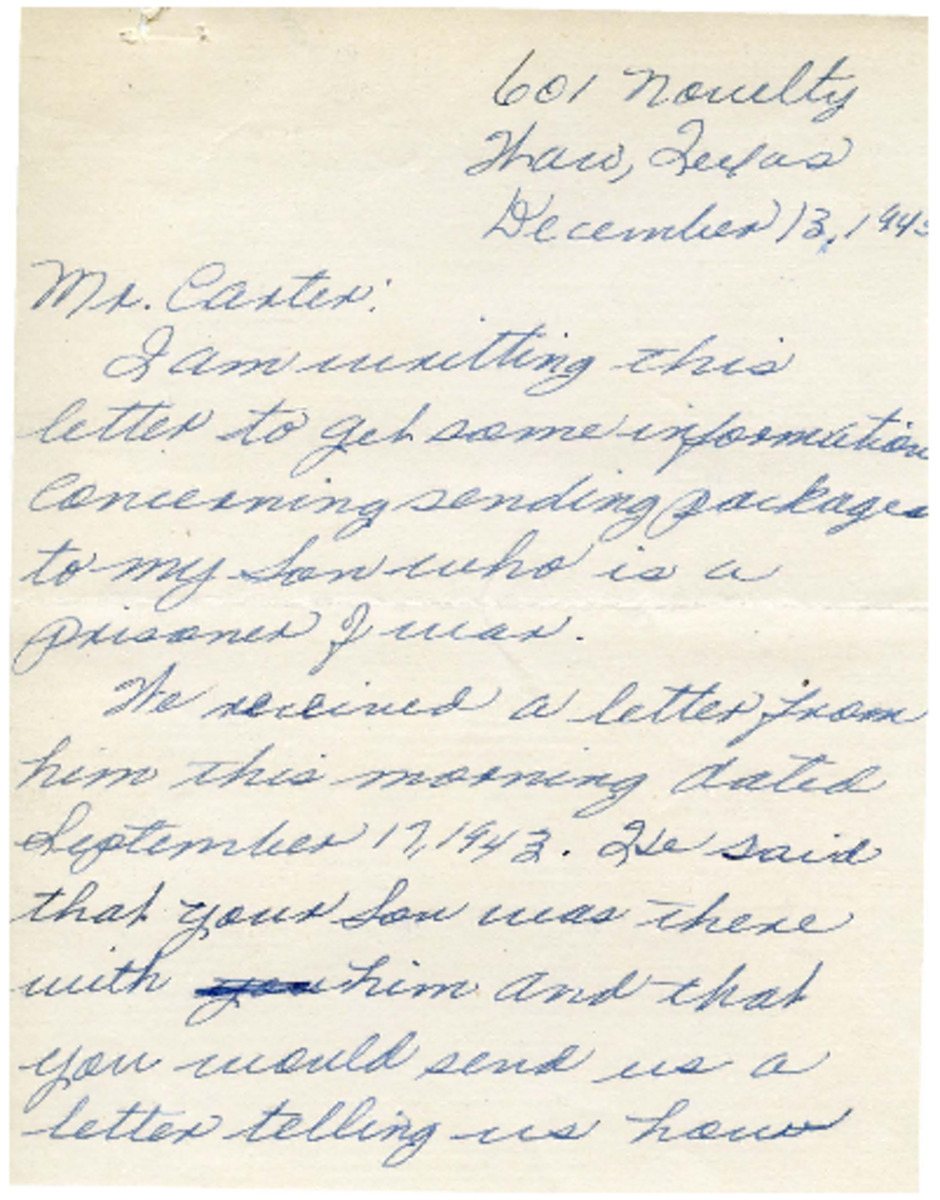 601 Novelty
Waco, Texas
December 13, 1943
Mr. Carter:
I am writting this
letter to get some information
concerning sending packages
to my son who is a
prisoner of war.
We received a letter from
him this morning dated
September 17, 1943. He said
that your son was there
with you him and that
you would send us a
letter telling us how